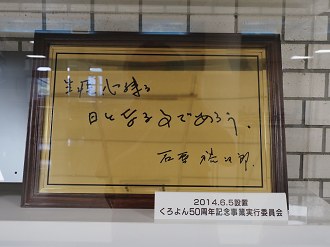 生涯心に残る
日となるであろう。
石原裕次郎
2014.6.5設置
くろよん50周年記念事業実行委員会